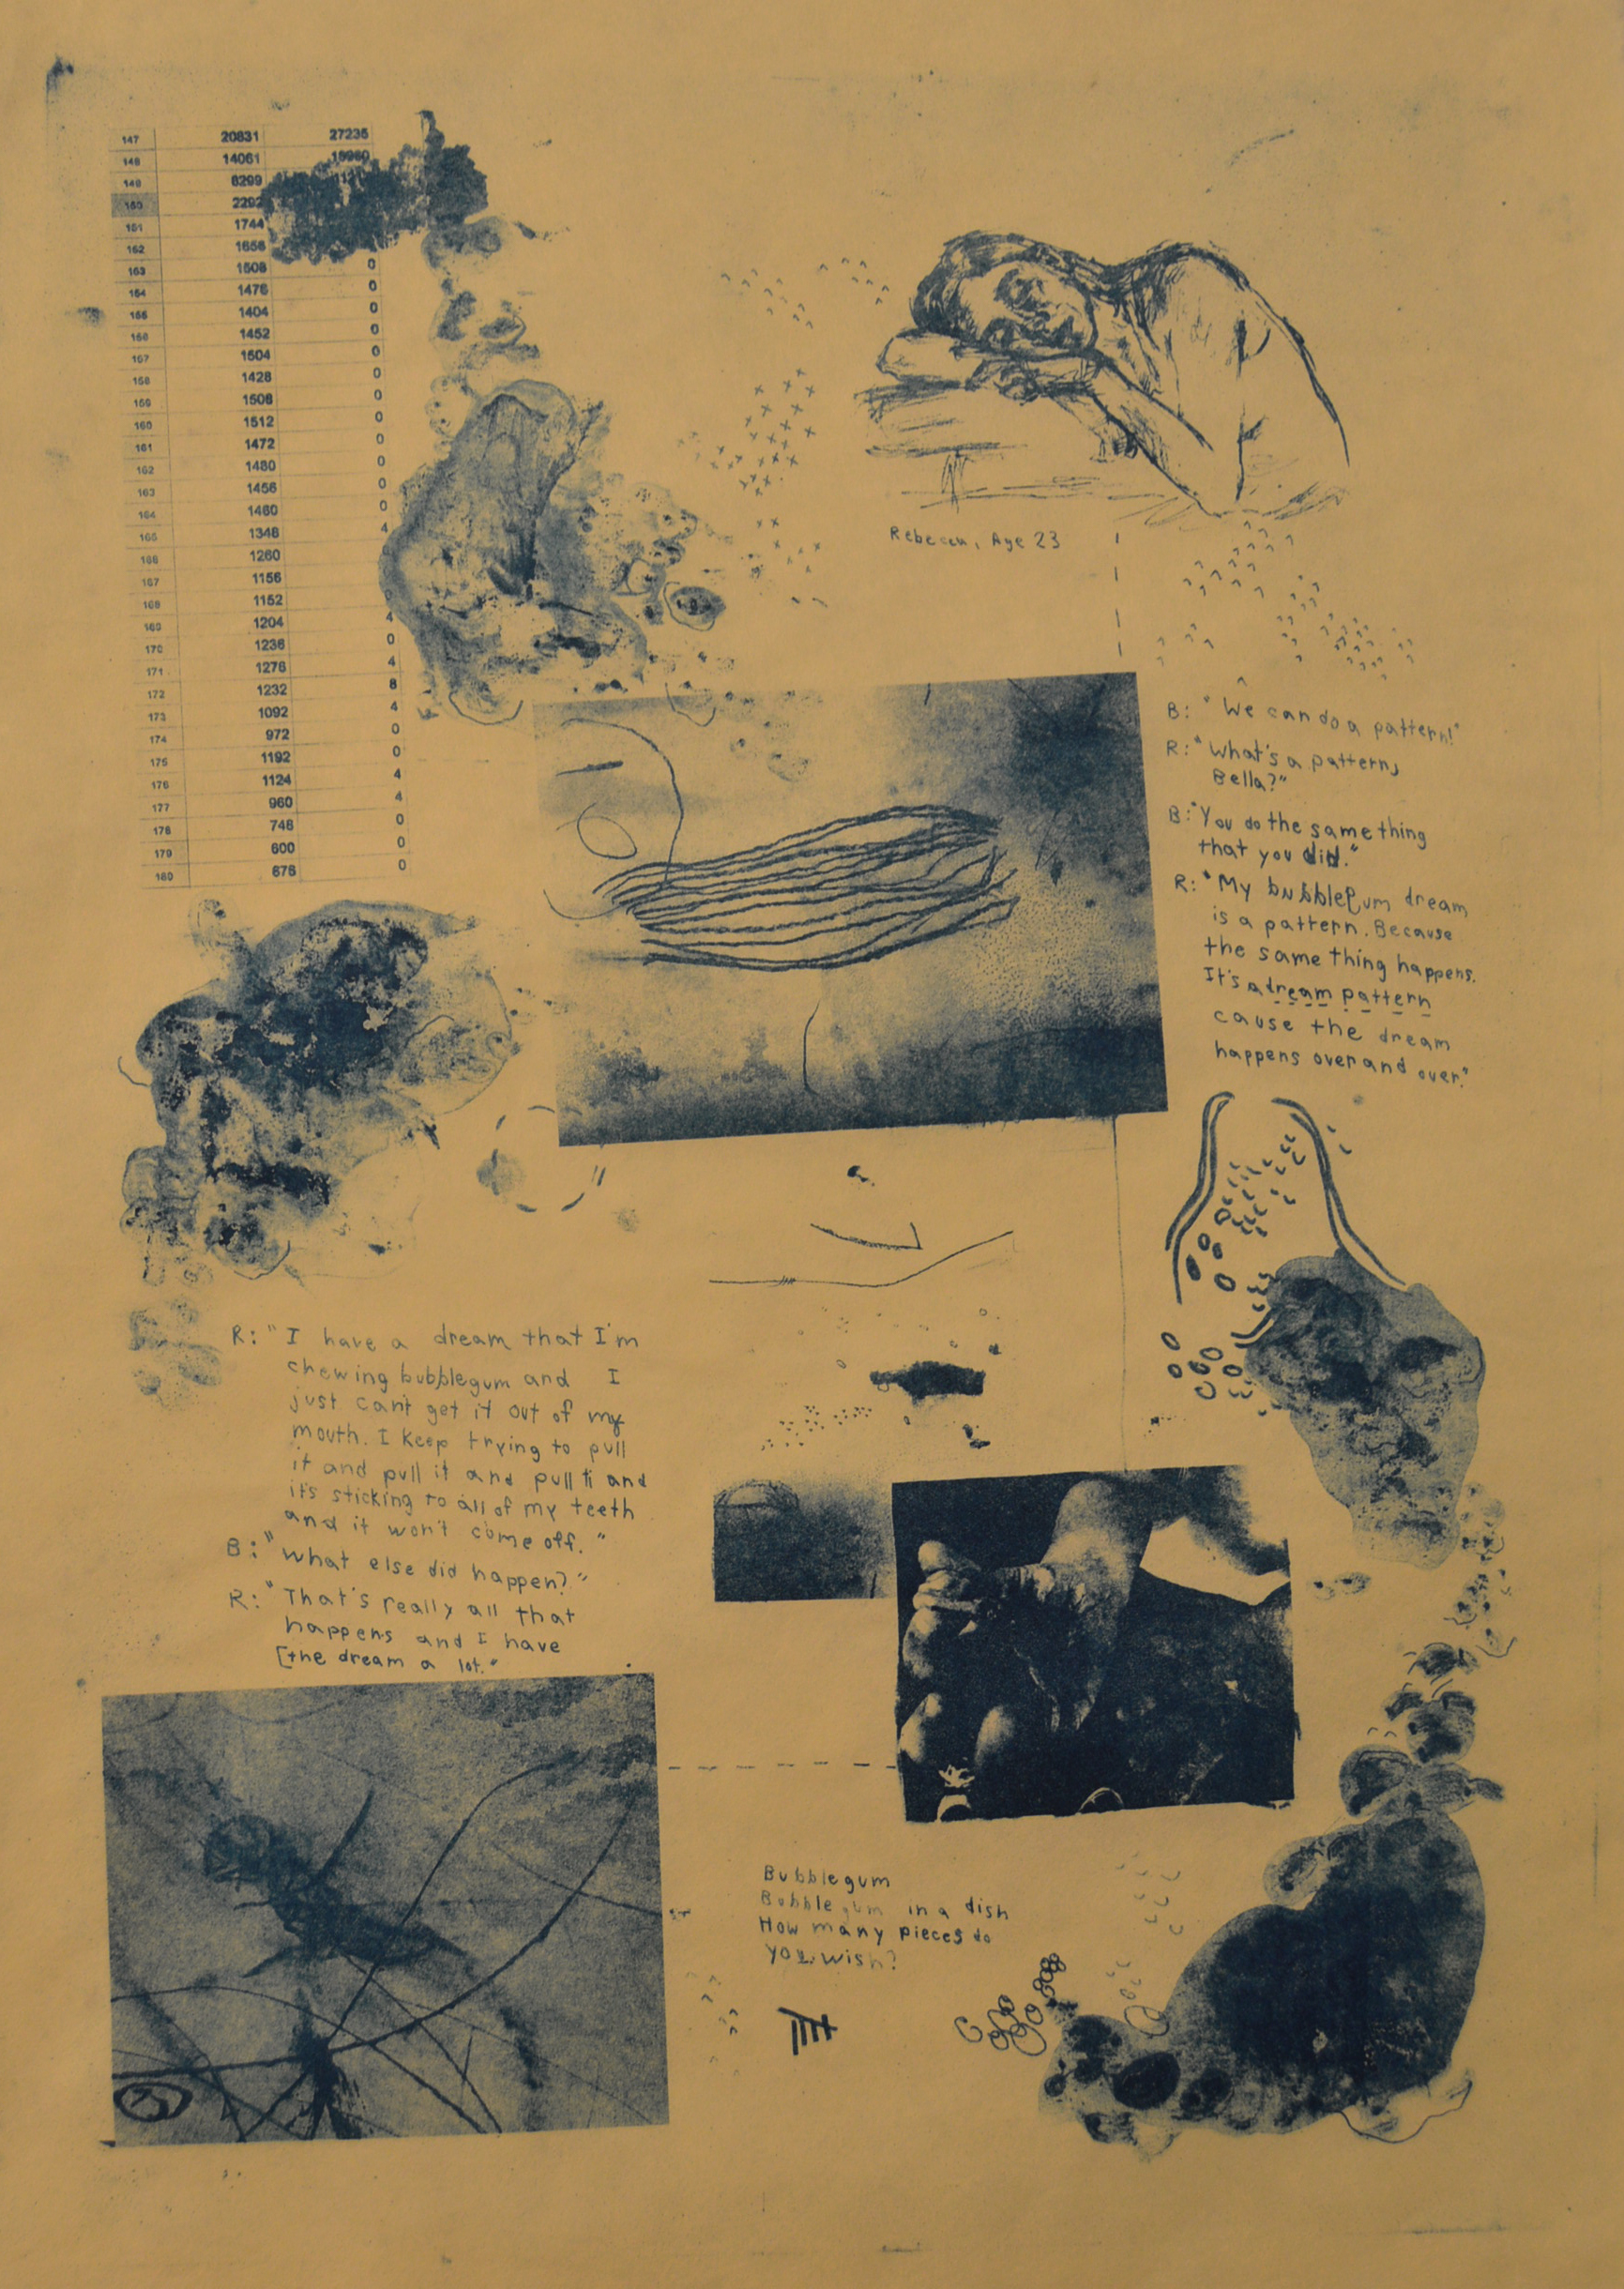 147 20831 27235
148 14061
149 8299
150 2292
151 1744
152 1656
153 1508 0
154 1476 0
155 1404 0
156 1452 0
157 1504 0
158 1428 0
159 1508 0
160 1512 0
161 1472 0
162 1480 0
163 1456 0
164 1460 0
165 1348 4
166 1260
167 1156
168 1152 4
169 1204 0
170 1236 4
171 1276 8
172 1232 4
173 1092 0
174 972 0
175 1192 4
176 1124 4
177 960 0
178 748 0
179 600 0
180 676
Rebecca, Age 23
B: "We can do a pattern!"
R: "What's a pattern,
Bella?"
B: "You do the same thing
that you did."
R: "My bubblegum dream
is a pattern. Because
the same thing happens.
It's a dream pattern
cause the dream
happens over and over."
R: "I have a dream that I'm
chewing bubblegum and I
just can't get it out of my
mouth. I keep trying to pull
it and pull it and pull ti and
it's sticking to all of my teeth
and it won't come off."
B: "What else did happen?"
R: "That's really all that
happens and I have
[the dream a lot."
Bubblegum
Bubblegum in a dish
How many pieces do
you wish?